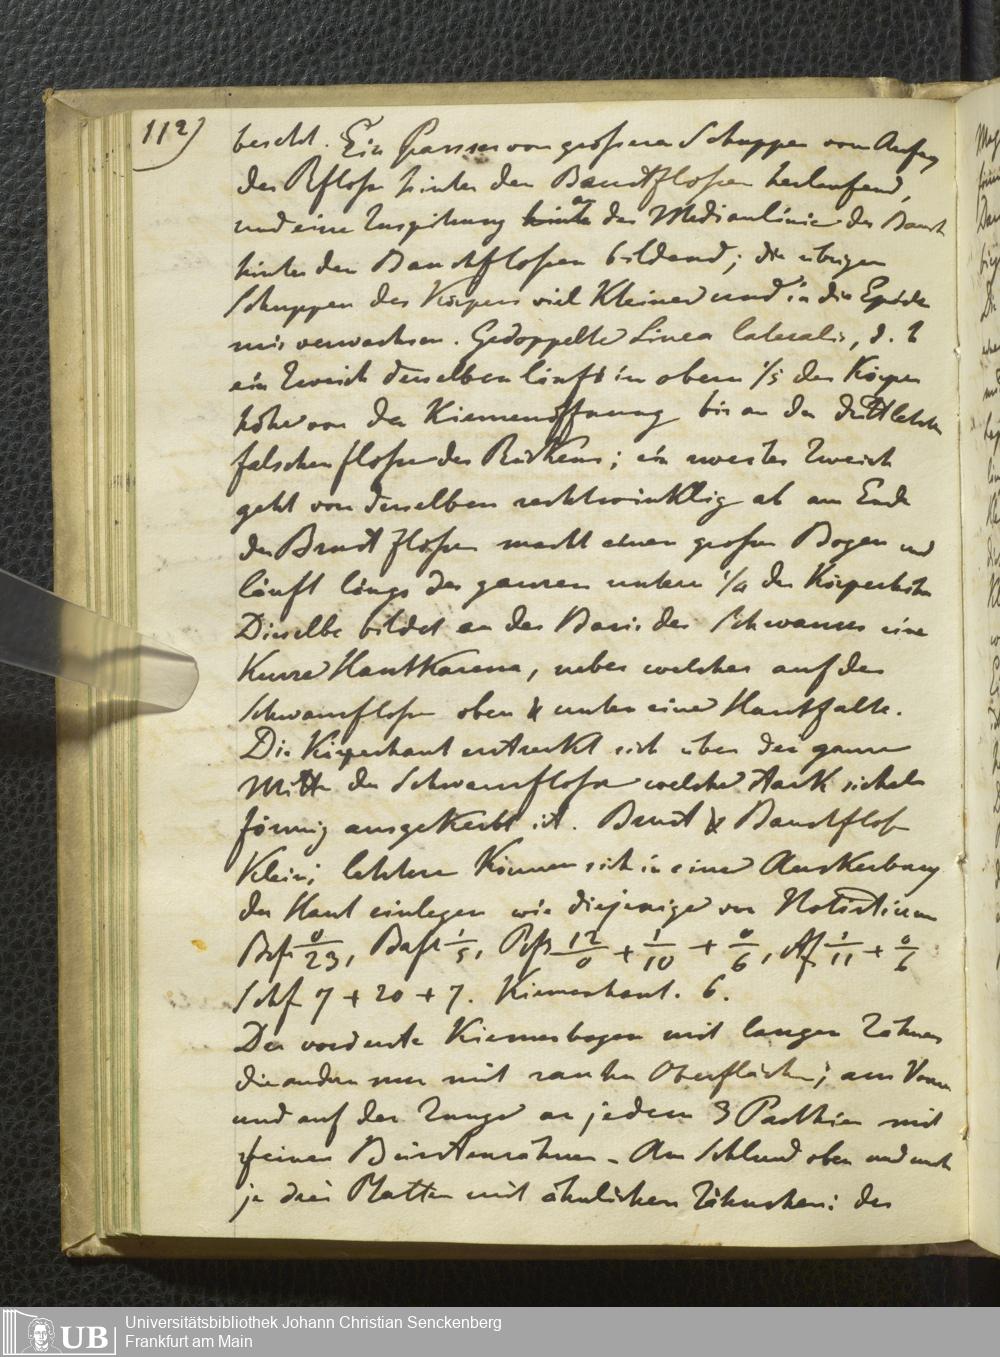 112)
besetzt. Ein Panzer von grosseren Schuppen vom Anfang
der Rflosse hinter den Brustflossen herlaufend,
und eine Zuspitzung an der Medianlinie des Bauch
hinter den Bauchflossen bildend; die übrigen
Schuppen des Körpers viel Kleiner und in die Epide
mis verwachsen. Gedoppelte Linea lateralis, d. h
ein Zweich derselben läuft in obern 1/5 der Körper
höhe von der Kiemenöffnung bis an der drittletzten
falschen flosse des Rückens; ein zweiter Zweich
geht von derselben rechtwinklig ab am Ende
der Brust flossen macht einen grossen Bogen und
läuft längs des ganzen untern 1/4 der Körperhöhe
Dieselbe bildet an der Basis des Schwanzes eine
Kurze HautKarena, ueber welcher auf der
Schwanzflosse oben & unten eine Hautfalte.
Die Körperhaut erstreckt sich über der ganzen
Mitte der Schwanzflosse welche stark sichel
förmig ausgeKerbt ist. Brust & Bauchflosse
Klein; letztere Können sich in einer AusKerbung
der Haut einlegen wie diejenige von Notistium
Brfl 0/23, Bafl 1/5, Rfl 12/0 + 1/10 + 0/6, Af 1/11 + 0/6
Schf 7 + 20 + 7. Kiemenhaut. 6.
Der vorderste Kiemenbogen mit langen Zähnen
die andern nur mit rauher Oberfläche; am Vomer
und auf der Zunge an jedem 3 Parthien mit
feinen Bürstenzähnen – Am Schlund oben und unten
je drei Platten mit ähnlichen Zähnchen: der
Universitätsbibliothek Johann Christian Senckenberg
Frankfurt am Main
UB